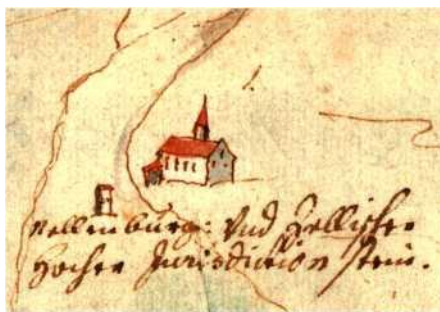 Nellenburg: Vnd Zellischer
Hocher Jurisdiction stein.